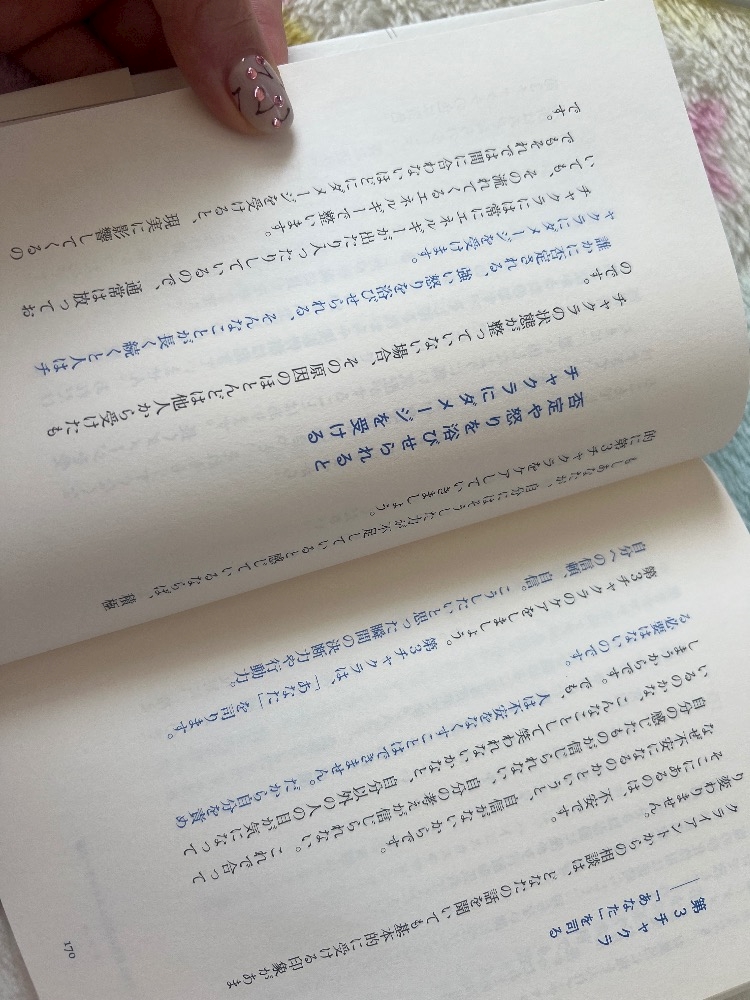 第3チャクラ
――「あなた」を司る
クライアントからの相談は、どなたの話を聞いても基本的に受ける印象があま
り変わりません。
そこにあるのは、不安です。
なぜ不安になるのかというと、自信がないからです。
自分の感じたものが信じられない、自分の考えが信じられない。これで合って
いるのかな、こんなことして笑われないかなと、自分以外の人の目が気になって
しまうからです。でも、人は不安をなくすことはできません。だから自分を責め
る必要はないのです。
第3チャクラのケアをしましょう。第3チャクラは、「あなた」を司ります。
自分への信頼、自信。こうしたいと思った瞬間の決断力や行動力。
もしあなたが、自分にはそうした力が不足していると感じているならば、積極
的に第3チャクラをケアしていきましょう。
170
否定や怒りを浴びせられると
チャクラにダメージを受ける
チャクラの状態が整っていない場合、その原因のほとんどは他人から受けたも
のです。
誰かに否定される、強い怒りを浴びせられる、そんなことが長く続くと人はチ
ャクラにダメージを受けます。
チャクラには常にエネルギーが出たり入ったりしているので、通常は放ってお
いても、その流れてくるエネルギーで整います。
でもそれでは間に合わないほどにダメージを受けると、現実に影響してくるの
です。